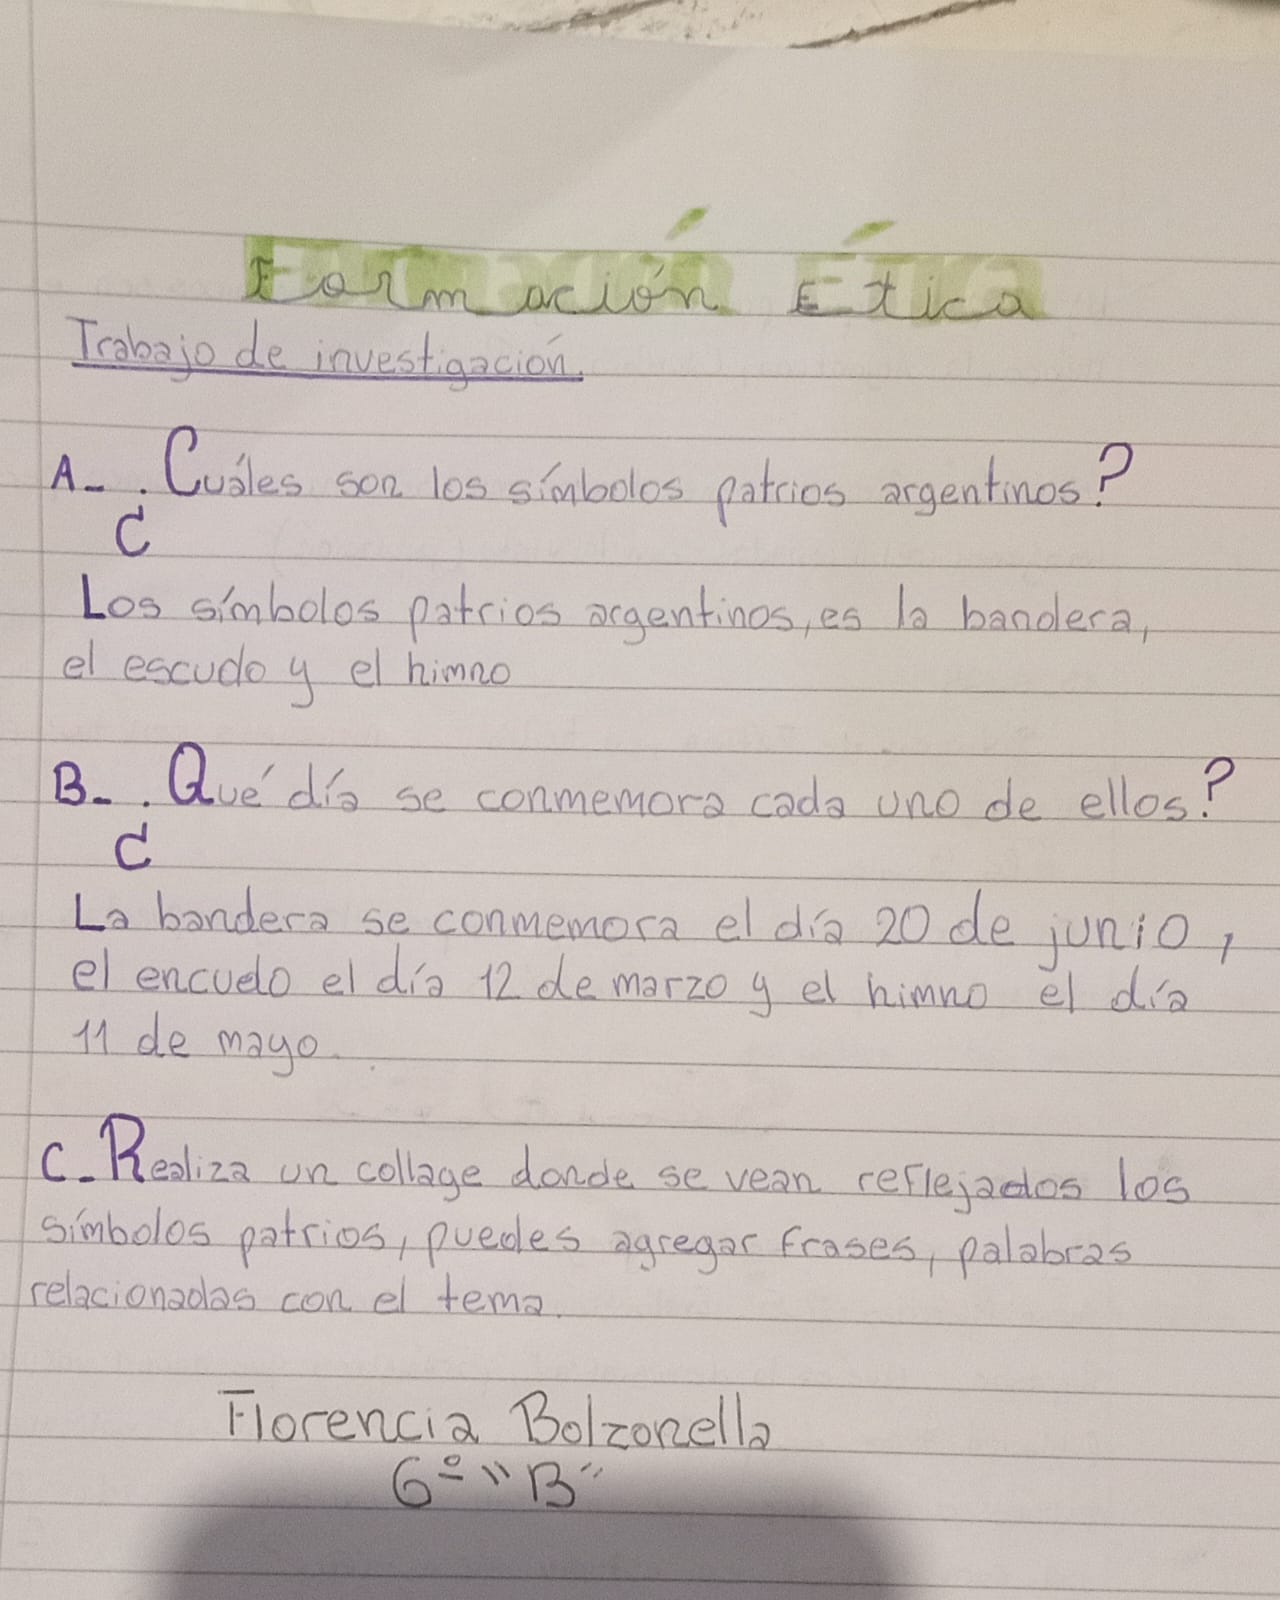 Formación Ética
Trabajo de investigación.
A-. ¿Cuáles son los símbolos patrios argentinos?
Los símbolos patrios argentinos, es la bandera,
el escudo y el himno
B-. ¿Qué día se conmemora cada uno de ellos?
La bandera se conmemora el día 20 de junio,
el encudo el día 12 de marzo y el himno el día
11 de mayo.
C-Realiza un collage donde se vean reflejados los
símbolos patrios, puedes agregar frases, palabras
relacionadas con el tema.
Florencia Bolzonella
6º "B"